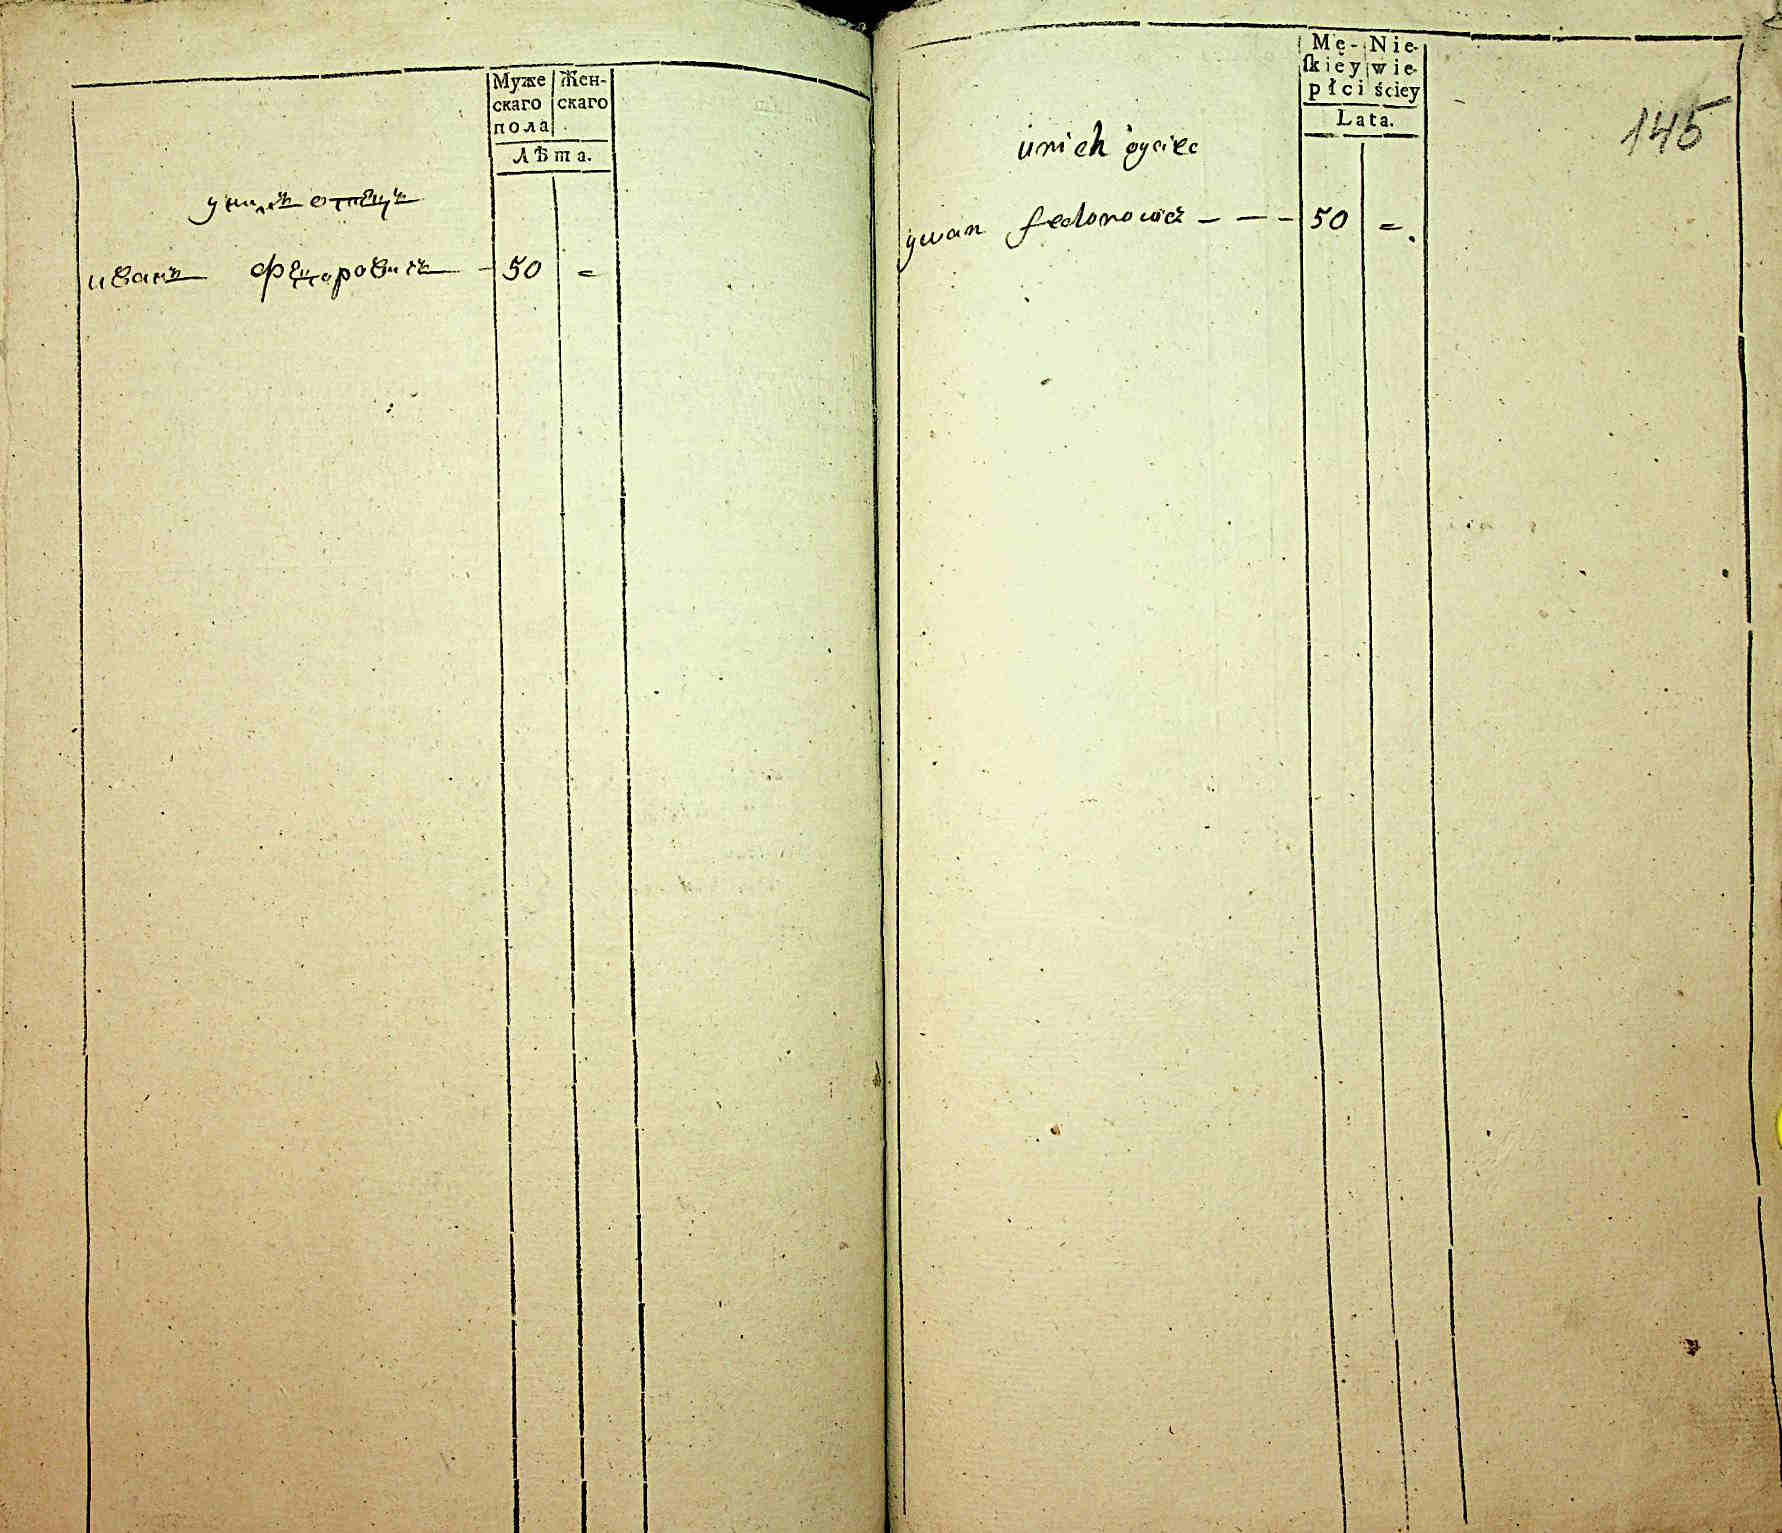 Муже
скаго
пола
Жен-
скаго
Лѣта.
у них отецъ
иванъ федоровичъ - 50 =
Mę-
ſkiey
płci
Nie-
wie-
ściey
Lata.
145
u nich oyciec
ywan fedorowicz - - - 50 =